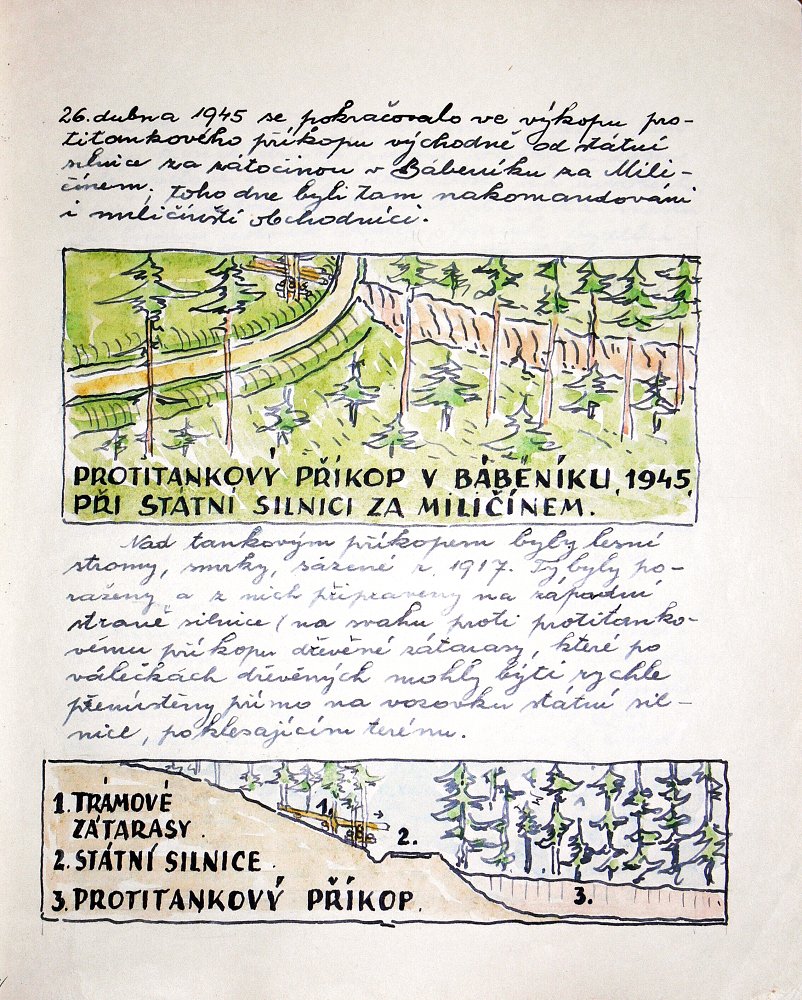 26. dubna 1945 se pokračovalo ve výkopu pro-
titankového příkopu východně od státní
silnice za zátočinou v Bábeníku za Mili-
čínem; toho dne byli tam nakomandováni
i miličínští obchodníci.
PROTITANKOVÝ PŘÍKOP V BÁBENÍKU, 1945,
PŘI STÁTNÍ SILNICI ZA MILIČÍNEM.
Nad tankovým příkopem byly lesní
stromy, smrky, sázené r. 1917. Ty byly po-
raženy a z nich připraveny na západní
straně silnice (na svahu proti protitanko-
vému příkopu dřevěné zátarasy, které po
válečkách dřevěných mohly býti rychle
přemístěny přímo na vozovku státní sil-
nice, poklesajícím terénu.
1.
2.
3.
1. TRÁMOVÉ
ZÁTARASY.
2. STÁTNÍ SILNICE.
3. PROTITANKOVÝ PŘÍKOP.